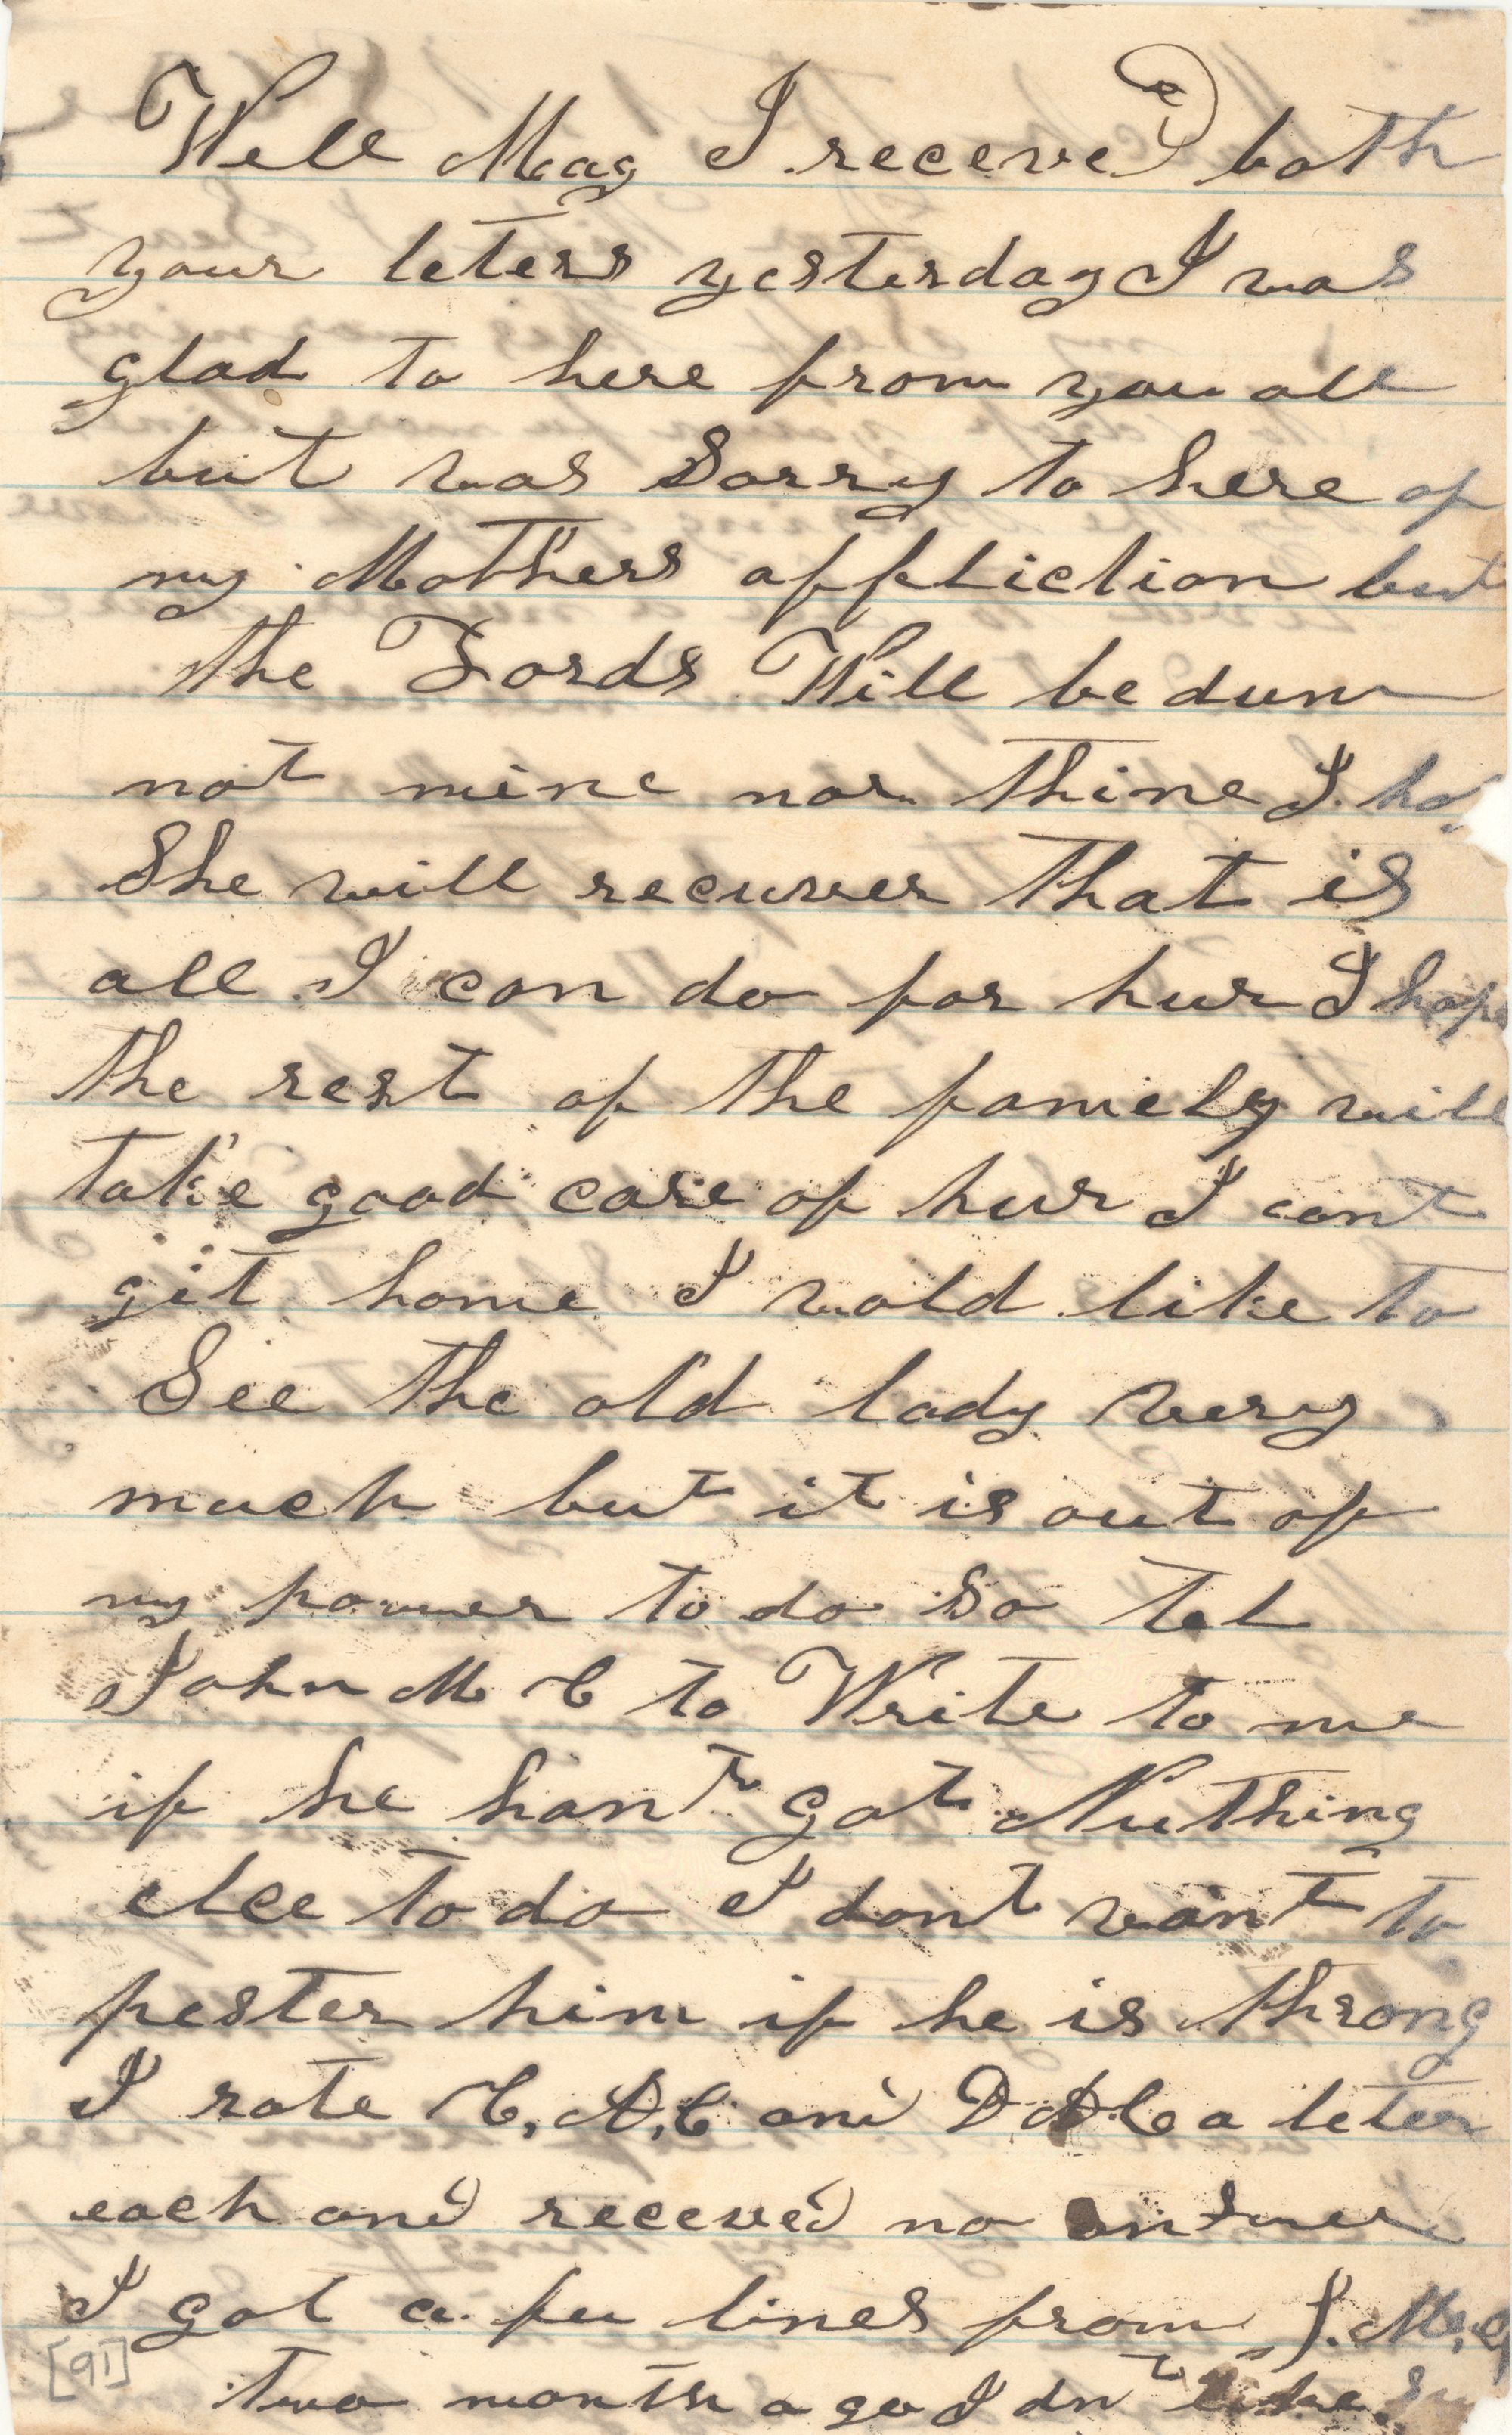 Well Mag I receved both
your leters yesterday I was
glad to here from you all
but was Sorry to here of
my Mothers affliction but
the Lords Will be dun
not mine nor thine I ho
She will recuver that is
all I can do for hur I hope
the rest of the famiely will
take good care of hur I cant
git home I wold like to
See the old lady very
much but it is out of
my power to do So tel
John M C to Write to me
if he hant got Nuthing
elce to do I dont want to
pester him if he is throng
I rote C, A, C and D A C a leter
each and receved no answer
I got a fu lines from J. M. C
[91] two month ago I dnt like